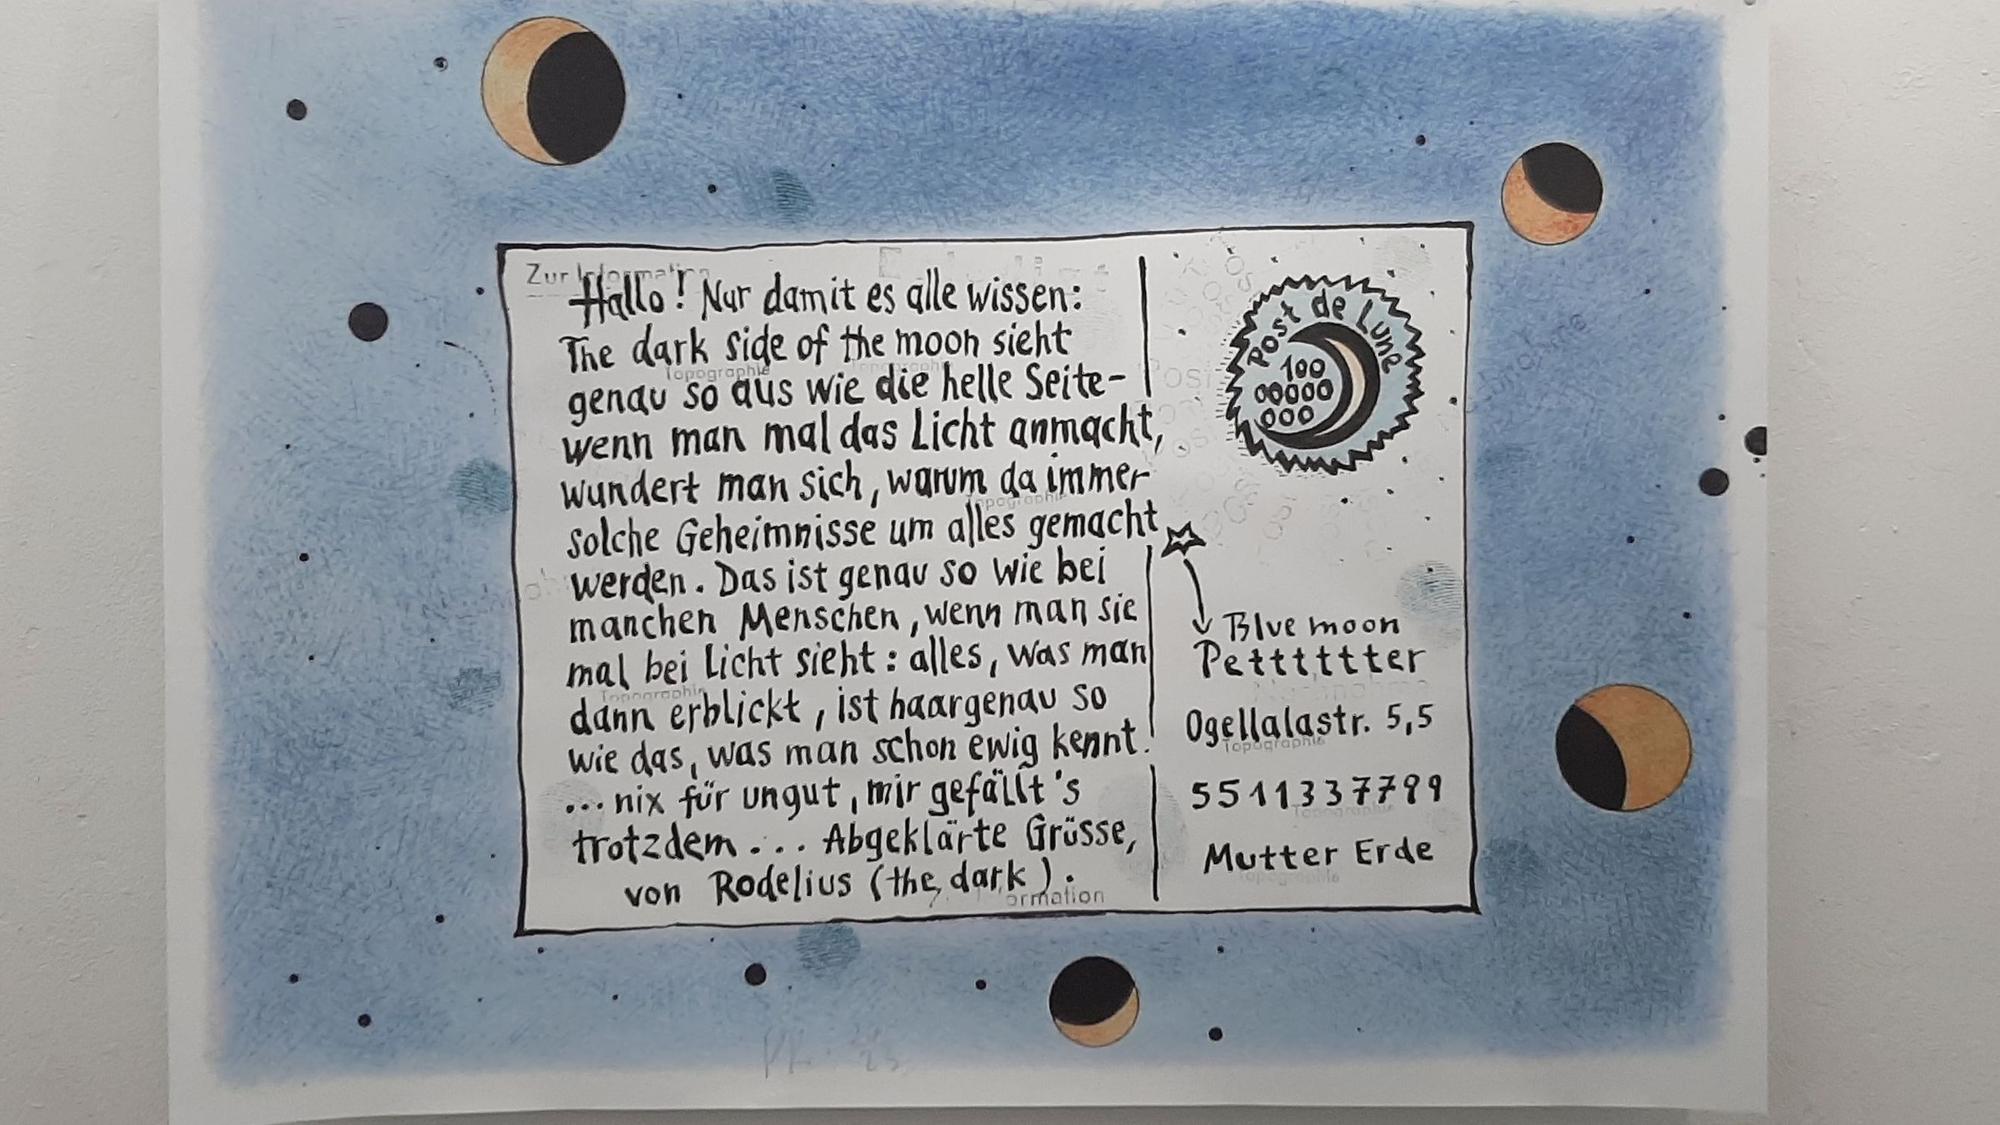 Zur Information
Hallo! Nur damit es alle wissen:
The dark side of the moon sieht
genau so aus wie die helle Seite-
wenn man mal das Licht anmacht,
wundert man sich, warum da immer
solche Geheimnisse um alles gemacht
werden. Das ist genau so wie bei
manchen Menschen, wenn man sie
mal bei Licht sieht: alles, was man
dann erblickt, ist haargenau so
wie das, was man schon ewig kennt.
...nix für ungut, mir gefällt's
trotzdem... Abgeklärte Grüsse,
von Rodelius (the dark).
Topographie
Topographie
Topographie
Topographie
ormation
Post de Lune
100
00000
000
Blue moon
Pettttttter
Ogellalastr. 5,5
Topographie
5511337799
Topographie
Mutter Erde
Topographie